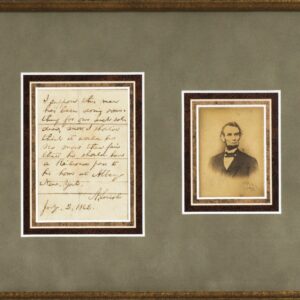 I suppose this man
has been doing some-
thing for our sick sol-
diers, and I should
think it would be
no more than fair
that he should have
a
pass to
his home at Albany
New York.
A. Lincoln
July 2, 1862.